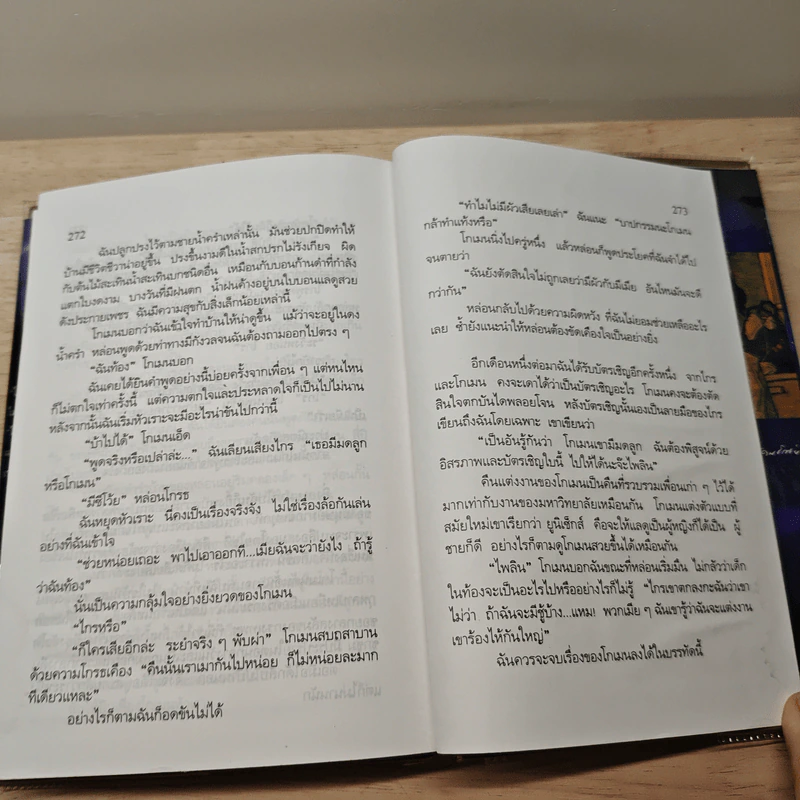 272
ฉันปลูกปรงไว้ตามชายน้ำครำเหล่านั้น มันช่วยปกปิดทำให้
บ้านมีชีวิตชีวาน่าอยู่ขึ้น ปรงขึ้นงามดีในน้ำสกปรกไม่รังเกียจ ผิด
กับต้นไม้สะเทินน้ำสะเทินบกชนิดอื่น เหมือนกับบอนก้านดำที่กำลัง
แตกใบงดงาม บางวันที่มีฝนตก น้ำฝนค้างอยู่บนใบบอนแลดูสวย
ดังประกายเพชร ฉันมีความสุขกับสิ่งเล็กน้อยเหล่านี้
โกเมนบอกว่าฉันเข้าใจทำบ้านให้น่าดูขึ้น แม้ว่าจะอยู่ในดง
น้ำครำ หล่อนพูดด้วยท่าทางมีกังวลจนฉันต้องถามออกไปตรง ๆ
“ฉันท้อง” โกเมนบอก
ฉันเคยได้ยินคำพูดอย่างนี้บ่อยครั้งจากเพื่อน ๆ แต่หนไหน
ก็ไม่ตกใจเท่าครั้งนี้ แต่ความตกใจและประหลาดใจก็เป็นไปไม่นาน
หลังจากนั้นฉันเริ่มหัวเราะจะมีอะไรน่าขันไปกว่านี้
“บ้าไปได้” โกเมนเอ็ด
“พูดจริงหรือเปล่าล่ะ...” ฉันเลียนเสียงไกร “เธอมีมดลูก
หรือโกเมน”
“มีซีโว้ย” หล่อนโกรธ
ฉันหยุดหัวเราะ นี่คงเป็นเรื่องจริงจัง ไม่ใช่เรื่องล้อกันเล่น
อย่างที่ฉันเข้าใจ
“ช่วยหน่อยเถอะ พาไปเอาออกที...เมียฉันจะว่ายังไง ถ้ารู้
ว่าฉันท้อง”
นั่นเป็นความกลุ้มใจอย่างยิ่งยวดของโกเมน
“ไกรหรือ”
“ก็ใครเสียอีกล่ะ ระยำจริง ๆ พับผ่า” โกเมนสบถสาบาน
ด้วยความโกรธเคือง “คืนนั้นเรามากันไปหน่อย ก็ไม่หน่อยละมาก
ทีเดียวแหละ”
อย่างไรก็ตามฉันก็อดขันไม่ได้
273
“ทำไมไม่มีผัวเสียเลยเล่า” ฉันแนะ “บาปกรรมนะโกเมน
กล้าทำแท้งหรือ”
โกเมนนิ่งไปครู่หนึ่ง แล้วหล่อนก็พูดประโยคที่ฉันจำได้ไป
จนตายว่า
“ฉันยังตัดสินใจไม่ถูกเลยว่ามีผัวกับมีเมีย อันไหนมันจะดี
กว่ากัน”
หล่อนกลับไปด้วยความผิดหวัง ที่ฉันไม่ยอมช่วยเหลืออะไร
เลย ซ้ำยังแนะนำให้หล่อนต้องขัดเคืองใจเป็นอย่างยิ่ง
อีกเดือนหนึ่งต่อมาฉันได้รับบัตรเชิญอีกครั้งหนึ่ง จากไกร
และโกเมน คงจะเดาได้ว่าเป็นบัตรเชิญอะไร โกเมนคงจะต้องตัด
สินใจตกบันไดพลอยโจน หลังบัตรเชิญนั้นเองเป็นลายมือของไกร
เขียนถึงฉันโดยเฉพาะ เขาเขียนว่า
“เป็นอันรู้กันว่า โกเมนเขามีมดลูก ฉันต้องพิสูจน์ด้วย
อิสรภาพและบัตรเชิญใบนี้ ไปให้ได้นะจ๊ะไพลิน”
คืนแต่งงานของโกเมนเป็นคืนที่รวบรวมเพื่อนเก่า ๆ ไว้ได้
มากเท่ากับงานของมหาวิทยาลัยเหมือนกัน โกเมนแต่งตัวแบบที่
สมัยใหม่เขาเรียกว่า ยูนิเซ็กส์ คือจะให้แลดูเป็นผู้หญิงก็ได้เป็น ผู้
ชายก็ดี อย่างไรก็ตามดูโกเมนสวยขึ้นได้เหมือนกัน
“ไพลิน” โกเมนบอกฉันขณะที่หล่อนเริ่มมึน ไม่กลัวว่าเด็ก
ในท้องจะเป็นอะไรไปหรืออย่างไรก็ไม่รู้ “ไกรเขาตกลงกะฉันว่าเขา
ไม่ว่า ถ้าฉันจะมีชู้บ้าง...แหม! พวกเมีย ๆ ฉันเขารู้ว่าฉันจะแต่งงาน
เขาร้องไห้กันใหญ่”
ฉันควรจะจบเรื่องของโกเมนลงได้ในบรรทัดนี้